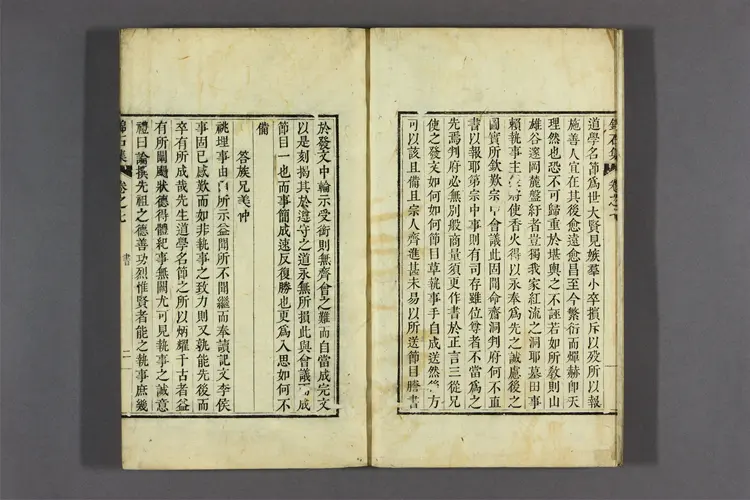 道學名節爲世大賢見嫉羣小卒擯斥以歿所以報
施善人宜在其後愈遠愈昌至今繁衍而煇赫卽天
理然也恐不可歸重於堪輿之不誣若如所敎則山
雄谷邃岡麓盤紆者豈獨我家紅流之洞耶墓田事
賴執事主 將使香火得以永奉爲先之誠處後之
圖實所欽歎宗中會議此固聞命齋洞判府何不直
書以報耶第宗中事則有司存雖位尊者不當爲之
先焉判府必無別般商量須更作書於正言三從兄
使之發文如何如何節目草執事手自成送然 方
可以該且備且宗人齊進甚未易以所送節目謄書
於發文中輪示受銜則無齊會之難而自當成完文
以是刻揭其於遵守之道永無所損此與會議 成
節目一也而事簡成速反復勝也更爲入思如何不
備
答族兄美仲
祧埋事由 所示益聞所不聞繼而奉讀記文李侯
事固已感歎而如非執事之致力則又孰能先後而
卒有所成哉先生道學名節之所以炳耀千古者益
有所闡颺狀德得體紀事無闕尤可見執事之誠意
禮曰論撰先祖之德善功烈惟賢者能之執事庶幾
錦石集 卷之七 書